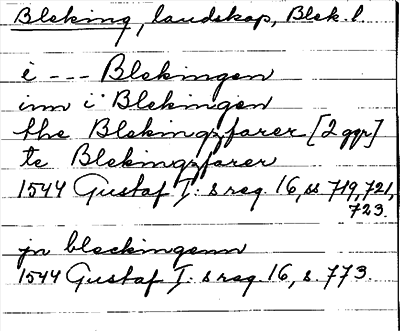 Bleking, landskap, Blek. l
i --- Blekingen
inn i Blekingen
the Blekingzfarer [2 ggr]
te Blekingzfarer
1544 Gustaf I: s reg 16, ss 719, 721,
723.
jn bleckingenn
1544 Gustaf I: s reg. 16, s. 773.